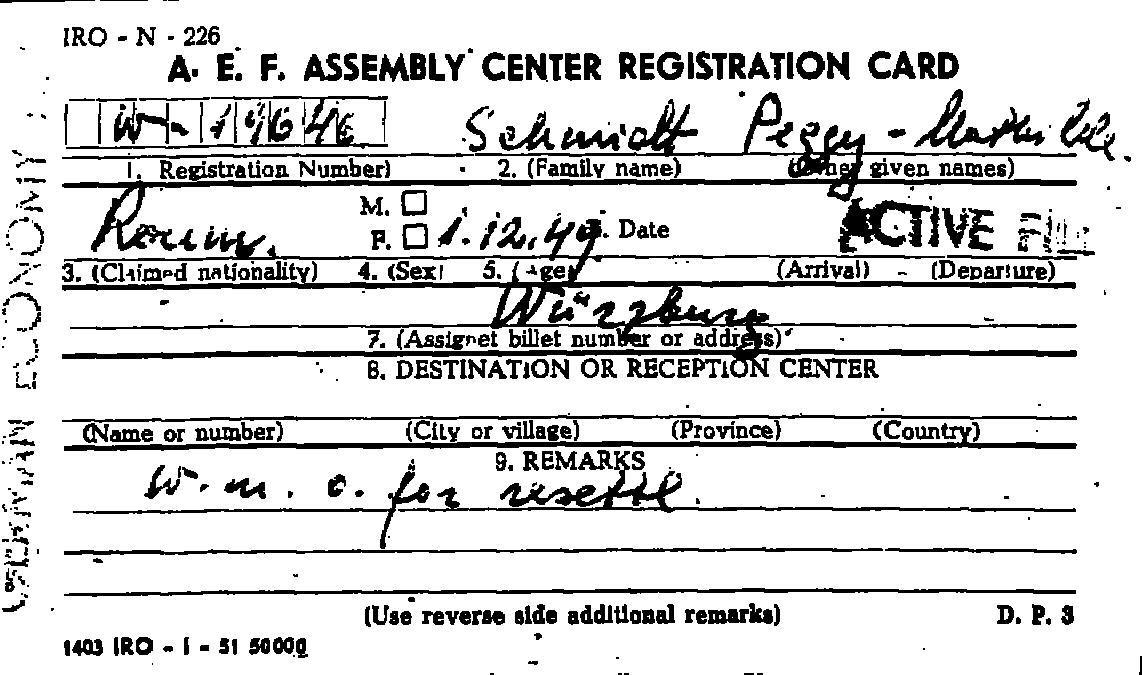 IRO - N - 226
A. E. F. ASSEMBLY CENTER REGISTRATION CARD
W - 19646 Schmidt Peggy -
1. Registration Number) 2. (Family name) (Other given names)
M.
Roum. F. 1.12.49. Date ACTIVE FILE
3. (Claimed nationality) 4. (Sex) 5. (Age) (Arrival) - (Departure)
Würzburg
7. (Assignet billet number or address)
8. DESTINATION OR RECEPTION CENTER
(Name or number) (City or village) (Province) (Country)
9. REMARKS
W. m. o. for resettl.
(Use reverse side additional remarks) D. P. 3
1403 IRO - I - 51 50000
GERMAN ECONOMY